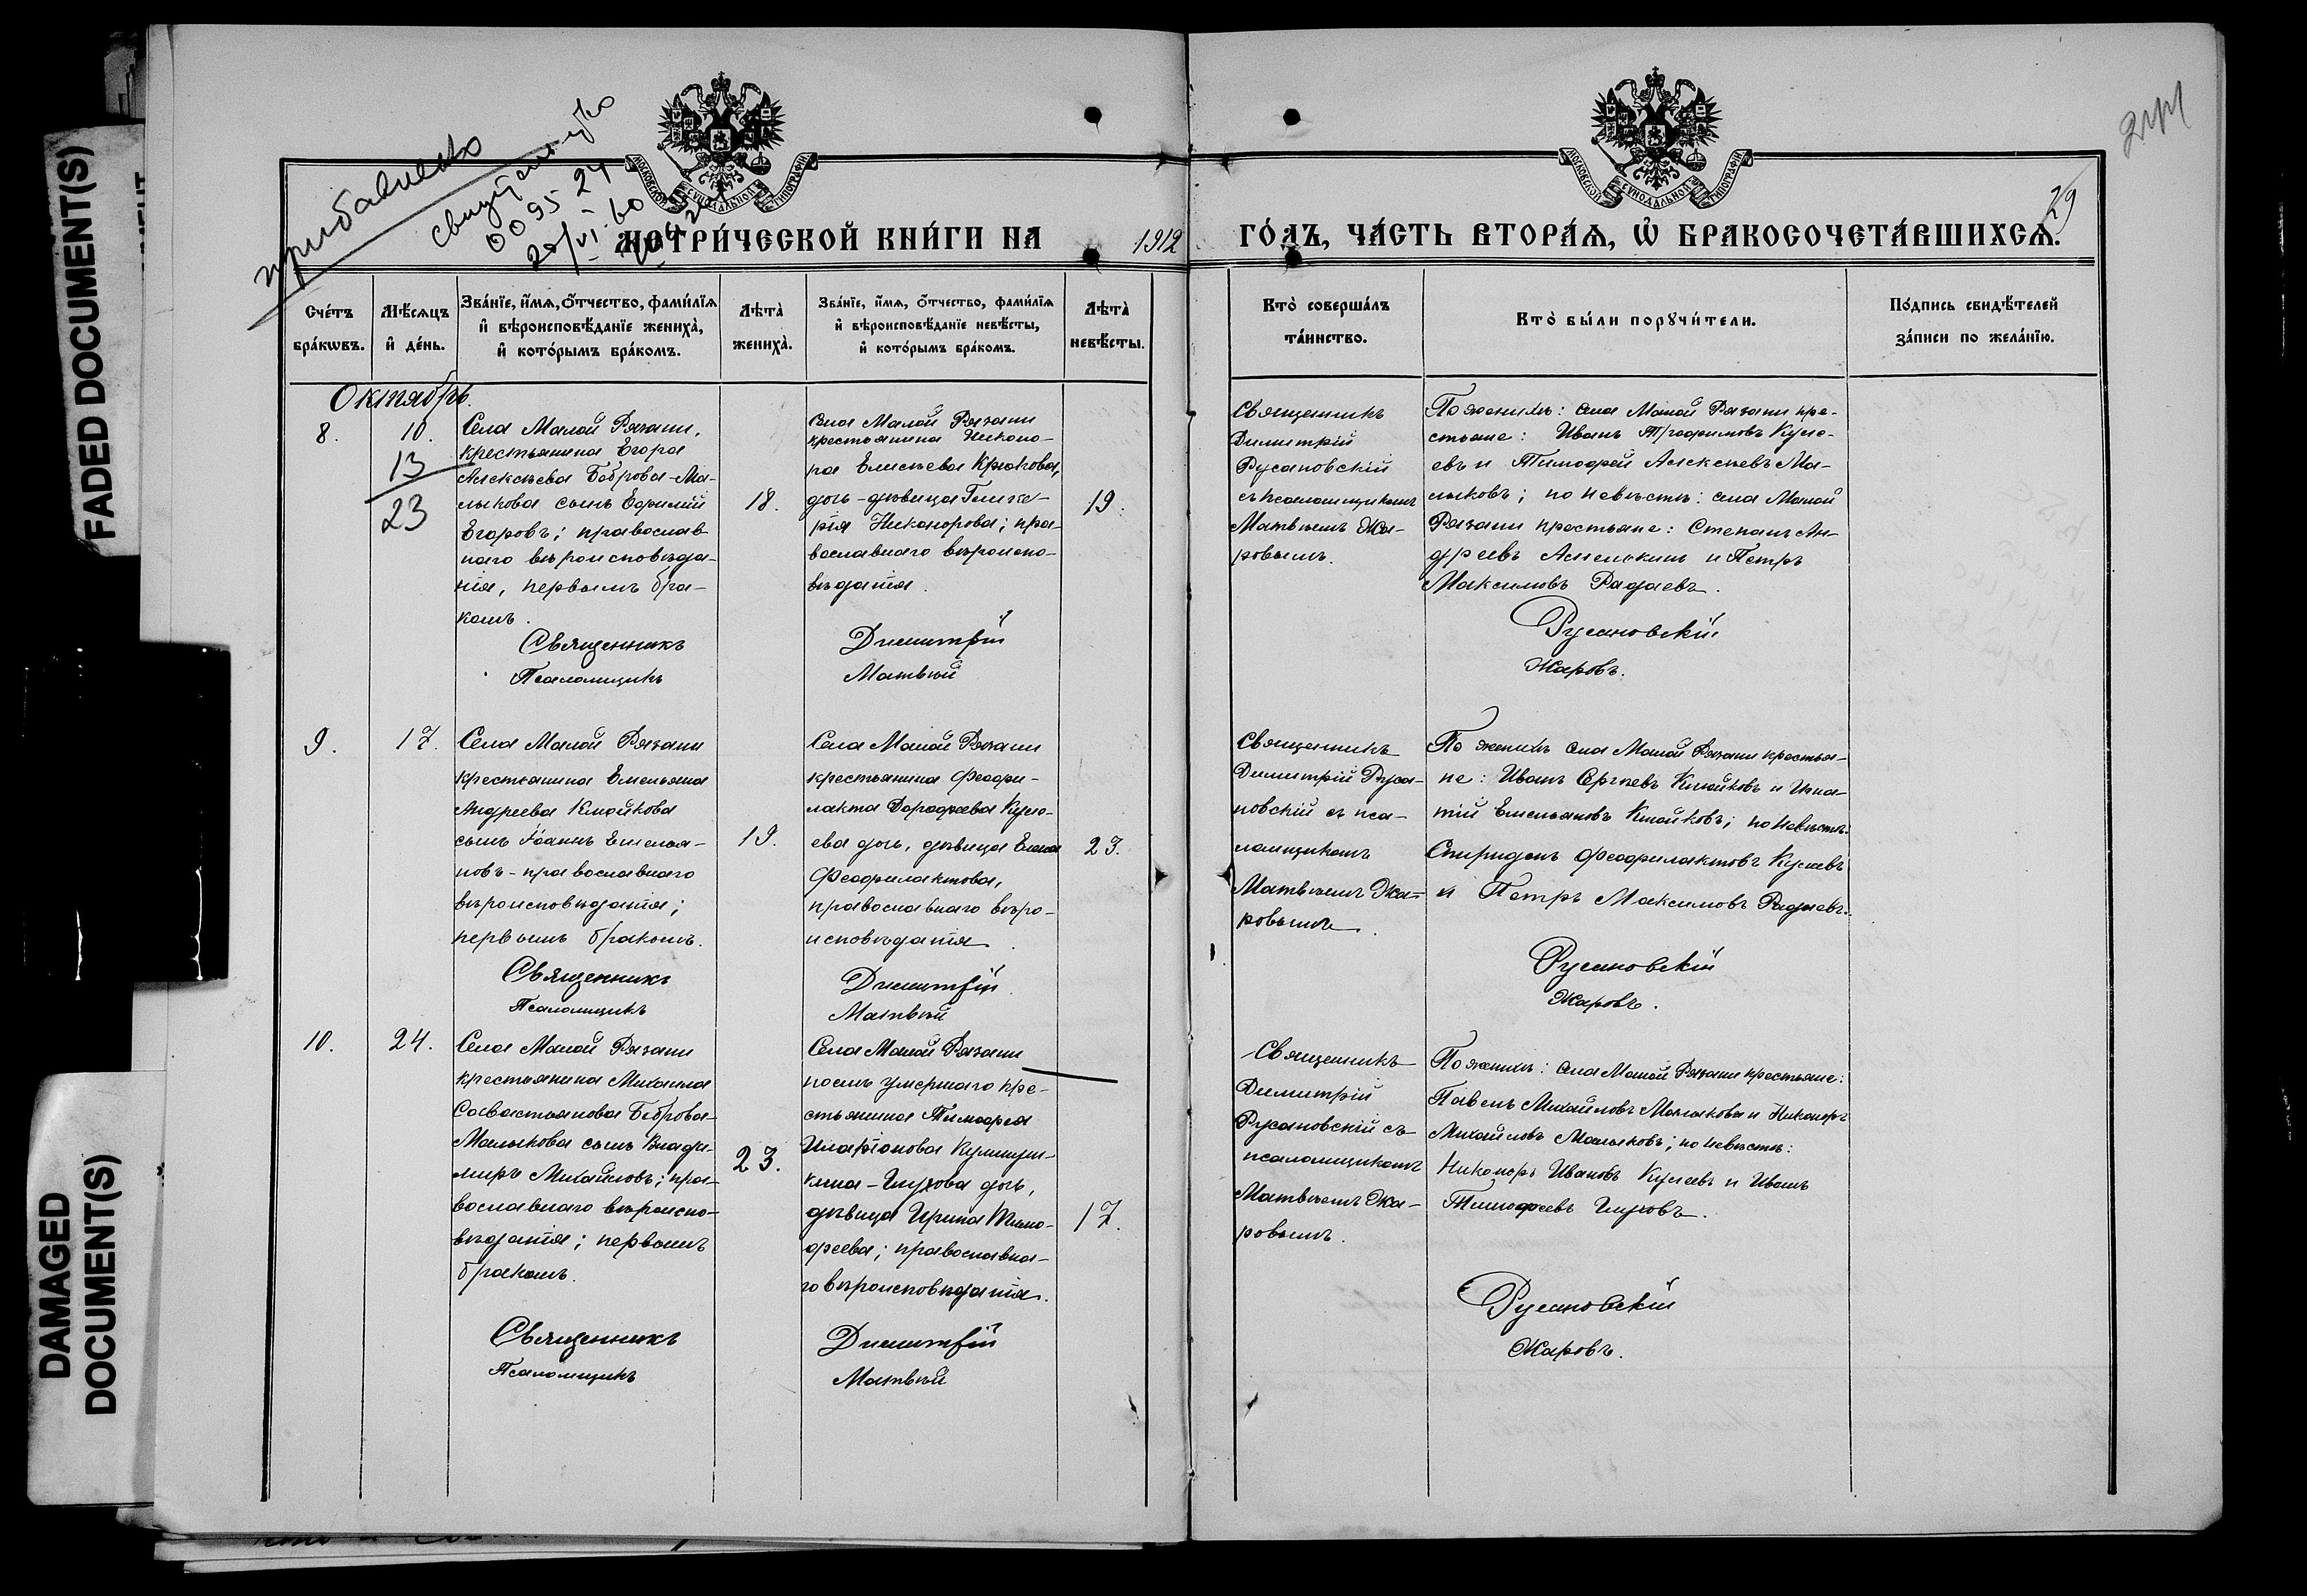 FADED DOCUMENT(S)
DAMAGED
DOCUMENT(S)
прибавлено
0095 24
МОСКОВСКОЙ СУНОДАЛЬНОЙ ТИПОГРАФІИ
МЕТРИ́ЧЕСКОЙ КНИ́ГИ НА 1912
ГО́ДЪ, ЧА́СТЬ ВТОРА́Я, Ѡ҆ БРАКОСОЧЕТА́ВШИХСЯ.
МОСКОВСКОЙ СУНОДАЛЬНОЙ ТИПОГРАФІИ
29
Сче́тъ
бра́кѡвъ.
Мѣ́сяцъ
и҆ де́нь.
Зва́нїе, и҆́мя, ѻ҆́тчество, фами́лїя
и҆ вѣроисповѣ́данїе жениха̀,
и҆ кото́рымъ бра́комъ.
Лѣ́та̀
жениха̀.
Зва́нїе, и҆́мя, ѻ҆́тчество, фами́лїя
и҆ вѣроисповѣ́данїе невѣ́сты,
и҆ кото́рымъ бра́комъ.
Лѣ́та̀
невѣ́сты.
Кто̀ соверша́лъ
та́инство.
Кто̀ бы́ли порꙋчи́тели.
По́дпись свидѣ́телей
за́писи по жела́нїю.
Октябрь.
8.
10.
13
23
Села Малой Рязани,
крестьянина Егора
Алексѣева Боброва-Ма-
лыкова сынъ Ефимій
Егоровъ; православ
наго вѣроисповѣда-
нія, первымъ бра-
комъ.
18.
Села Малой Рязани
крестьянина Никано-
ра Елисѣева Крюкова,
дочь - дѣвица Глике-
рія Никанорова; пра-
вославнаго вѣроиспо-
вѣданія.
19.
Священникъ
Димитрій
Русановскій
съ псаломщикомъ
Матвѣемъ Жа-
ровымъ.
По женихѣ: села Малой Рязани кре-
стьяне: Иванъ Трофимовъ Куле-
евъ и Тимофей Алексѣевъ Ма-
лыковъ; по невѣстѣ: села Малой
Рязани крестьяне: Степанъ Ан-
дреевъ и Петръ
Максимовъ Радаевъ.
Священникъ Димитрій Русановскій
Псаломщикъ Матвѣй Жаровъ.
9.
17.
Села Малой Рязани
крестьянина Емельяна
Андреева Клюйкова
сынъ Іоаннъ Емелья-
новъ - православнаго
вѣроисповѣданія;
первымъ бракомъ.
19.
Села Малой Рязани
крестьянина Феофи-
лакта Дорофеева Куле-
ева дочь, дѣвица Елена
Феофилактова,
православнаго вѣро-
исповѣданія.
23.
Священникъ
Димитрій Руса-
новскій съ пса-
ломщикомъ
Матвѣемъ Жа-
ровымъ.
По женихѣ села Малой Рязани крестья-
не: Иванъ Сергѣевъ Клюйковъ и Игна-
тій Емельяновъ Клюйковъ; по невѣстѣ:
Спиридонъ Феофилактовъ Кулеевъ
и Петръ Максимовъ Радаевъ.
Священникъ Димитрій Русановскій
Псаломщикъ Матвѣй Жаровъ.
10.
24.
Села Малой Рязани
крестьянина Михаила
Савастьянова Боброва-
Малыкова сынъ Влади-
миръ Михайловъ; пра-
вославнаго вѣроиспо-
вѣданія; первымъ
бракомъ.
23.
Села Малой Рязани
послѣ умершаго кре-
стьянина Тимофея
Иларіонова
дочь,
дѣвица Ирина Тимо-
феева; православна-
го вѣроисповѣданія.
17.
Священникъ
Димитрій
Русановскій съ
псаломщикомъ
Матвѣемъ Жа-
ровымъ.
По женихѣ: села Малой Рязани крестьяне:
Павелъ Михайловъ Малыковъ и Никаноръ
Михайловъ Малыковъ; по невѣстѣ:
Никаноръ Ивановъ Кулеевъ и Иванъ
Тимофеевъ
Священникъ Димитрій Русановскій
Псаломщикъ Матвѣй Жаровъ.